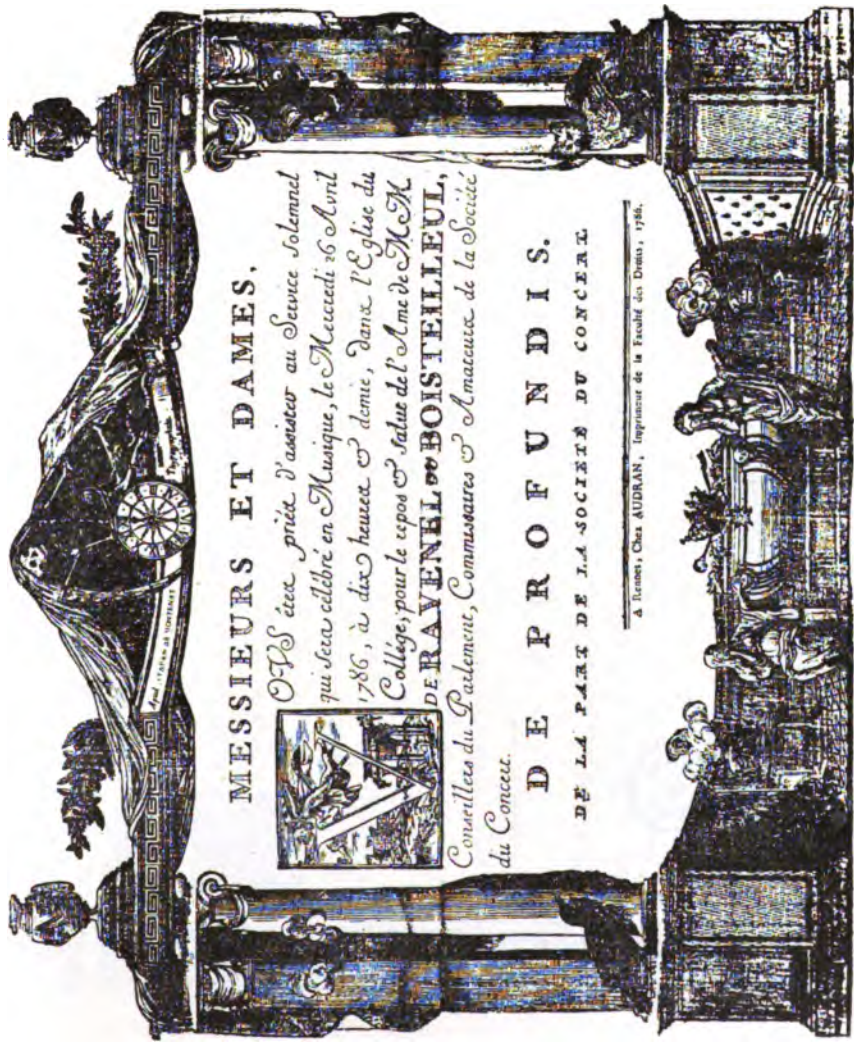 MESSIEURS ET DAMES,
VOUS étes priés d'assister au Service Solemnel
qui sera célébré en Musique, le Mercredi 26 Avril
1786, à dix heures & demie, dans l'Eglise du
Collége, pour le repos & salut de l'Ame de MM.
DE RAVENEL DU BOISTEILLEUL,
Conseillers du Parlement, Commissaires & Amateurs de la Société
du Concert.
DE PROFUNDIS.
DE LA PART DE LA SOCIETÉ DU CONCERT.
A Rennes, Chez AUDRAN, Imprimeur de la Faculté des Droits, 1786.